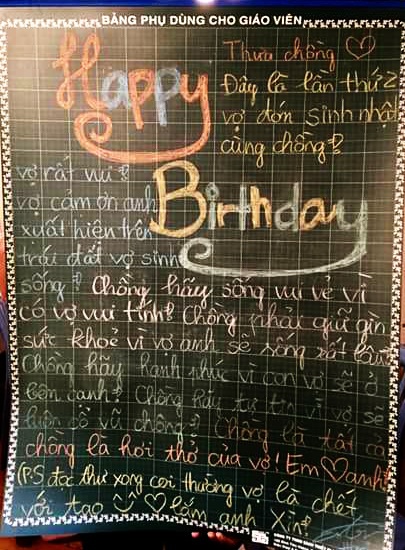 BẢNG PHỤ DÙNG CHO GIÁO VIÊN
Happy
Thưa chồng ♡
Đây là lần thứ 2
vợ đón sinh nhật
cùng chồng?
Birthday
vợ rất vui?
vợ cảm ơn anh
xuất hiện trên
trái đất vợ sinh
sống? Chồng hãy sống vui vẻ vì
có vợ vui tính? Chồng phải giữ gìn
sức khoẻ vì vợ anh sẽ sống rất lâu?
Chồng hãy hạnh phúc vì con vợ sẽ ở
bên cạnh? Chồng hãy tự tin vì vợ sẽ
luôn cổ vũ chồng? Chồng là tất cả
chồng là hơi thở của vợ! Em ♡ anh?
(P.S đọc thư xong coi thường vợ là chết
với tao ♡ lắm anh Xìn?